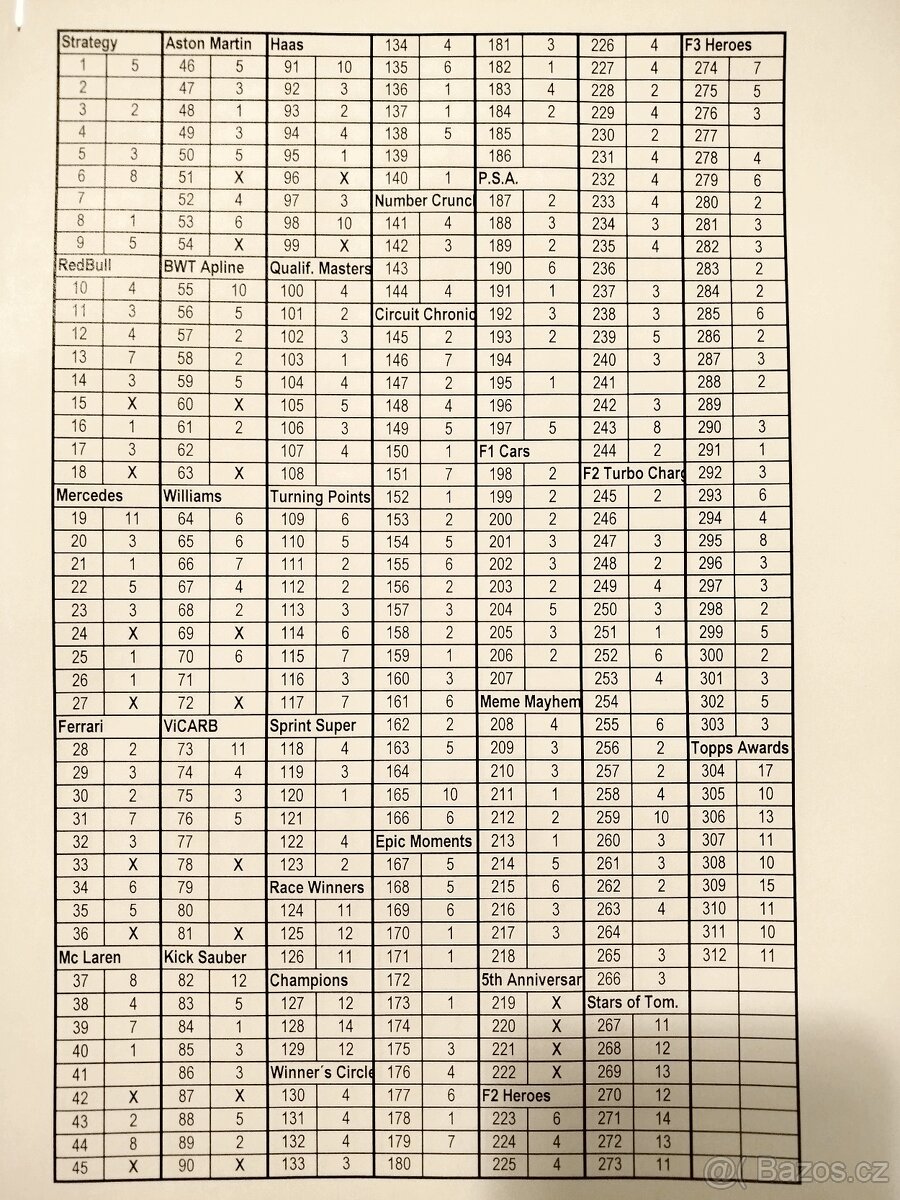 Strategy
1 5
2
3 2
4
5 3
6 8
7
8 1
9 5
RedBull
10 4
11 3
12 4
13 7
14 3
15 X
16 1
17 3
18 X
Mercedes
19 11
20 3
21 1
22 5
23 3
24 X
25 1
26 1
27 X
Ferrari
28 2
29 3
30 2
31 7
32 3
33 X
34 6
35 5
36 X
Mc Laren
37 8
38 4
39 7
40 1
41
42 X
43 2
44 8
45 X
Aston Martin
46 5
47 3
48 1
49 3
50 5
51 X
52 4
53 6
54 X
BWT Apline
55 10
56 5
57 2
58 2
59 5
60 X
61 2
62
63 X
Williams
64 6
65 6
66 7
67 4
68 2
69 X
70 6
71
72 X
ViCARB
73 11
74 4
75 3
76 5
77
78 X
79
80
81 X
Kick Sauber
82 12
83 5
84 1
85 3
86 3
87 X
88 5
89 2
90 X
Haas
91 10
92 3
93 2
94 4
95 1
96 X
97 3
98 10
99 X
Qualif. Masters
100 4
101 2
102 3
103 1
104 4
105 5
106 3
107 4
108
Turning Points
109 6
110 5
111 2
112 2
113 3
114 6
115 7
116 3
117 7
Sprint Super
118 4
119 3
120 1
121
122 4
123 2
Race Winners
124 11
125 12
126 11
Champions
127 12
128 14
129 12
Winner´s Circle
130 4
131 4
132 4
133 3
134 4
135 6
136 1
137 1
138 5
139
140 1
Number Crunc
141 4
142 3
143
144 4
Circuit Chronic
145 2
146 7
147 2
148 4
149 5
150 1
151 7
152 1
153 2
154 5
155 6
156 2
157 3
158 2
159 1
160 3
161 6
162 2
163 5
164
165 10
166 6
Epic Moments
167 5
168 5
169 6
170 1
171 1
172
173 1
174
175 3
176 4
177 6
178 1
179 7
180
181 3
182 1
183 4
184 2
185
186
P.S.A.
187 2
188 3
189 2
190 6
191 1
192 3
193 2
194
195 1
196
197 5
F1 Cars
198 2
199 2
200 2
201 3
202 3
203 2
204 5
205 3
206 2
207
Meme Mayhem
208 4
209 3
210 3
211 1
212 2
213 1
214 5
215 6
216 3
217 3
218
5th Anniversar
219 X
220 X
221 X
222 X
F2 Heroes
223 6
224 4
225 4
226 4
227 4
228 2
229 4
230 2
231 4
232 4
233 4
234 3
235 4
236
237 3
238 3
239 5
240 3
241
242 3
243 8
244 2
F2 Turbo Charg
245 2
246
247 3
248 2
249 4
250 3
251 1
252 6
253 4
254
255 6
256 2
257 2
258 4
259 10
260 3
261 3
262 2
263 4
264
265 3
266 3
Stars of Tom.
267 11
268 12
269 13
270 12
271 14
272 13
273 11
F3 Heroes
274 7
275 5
276 3
277
278 4
279 6
280 2
281 3
282 3
283 2
284 2
285 6
286 2
287 3
288 2
289
290 3
291 1
292 3
293 6
294 4
295 8
296 3
297 3
298 2
299 5
300 2
301 3
302 5
303 3
Topps Awards
304 17
305 10
306 13
307 11
308 10
309 15
310 11
311 10
312 11
@( Bazos.cz